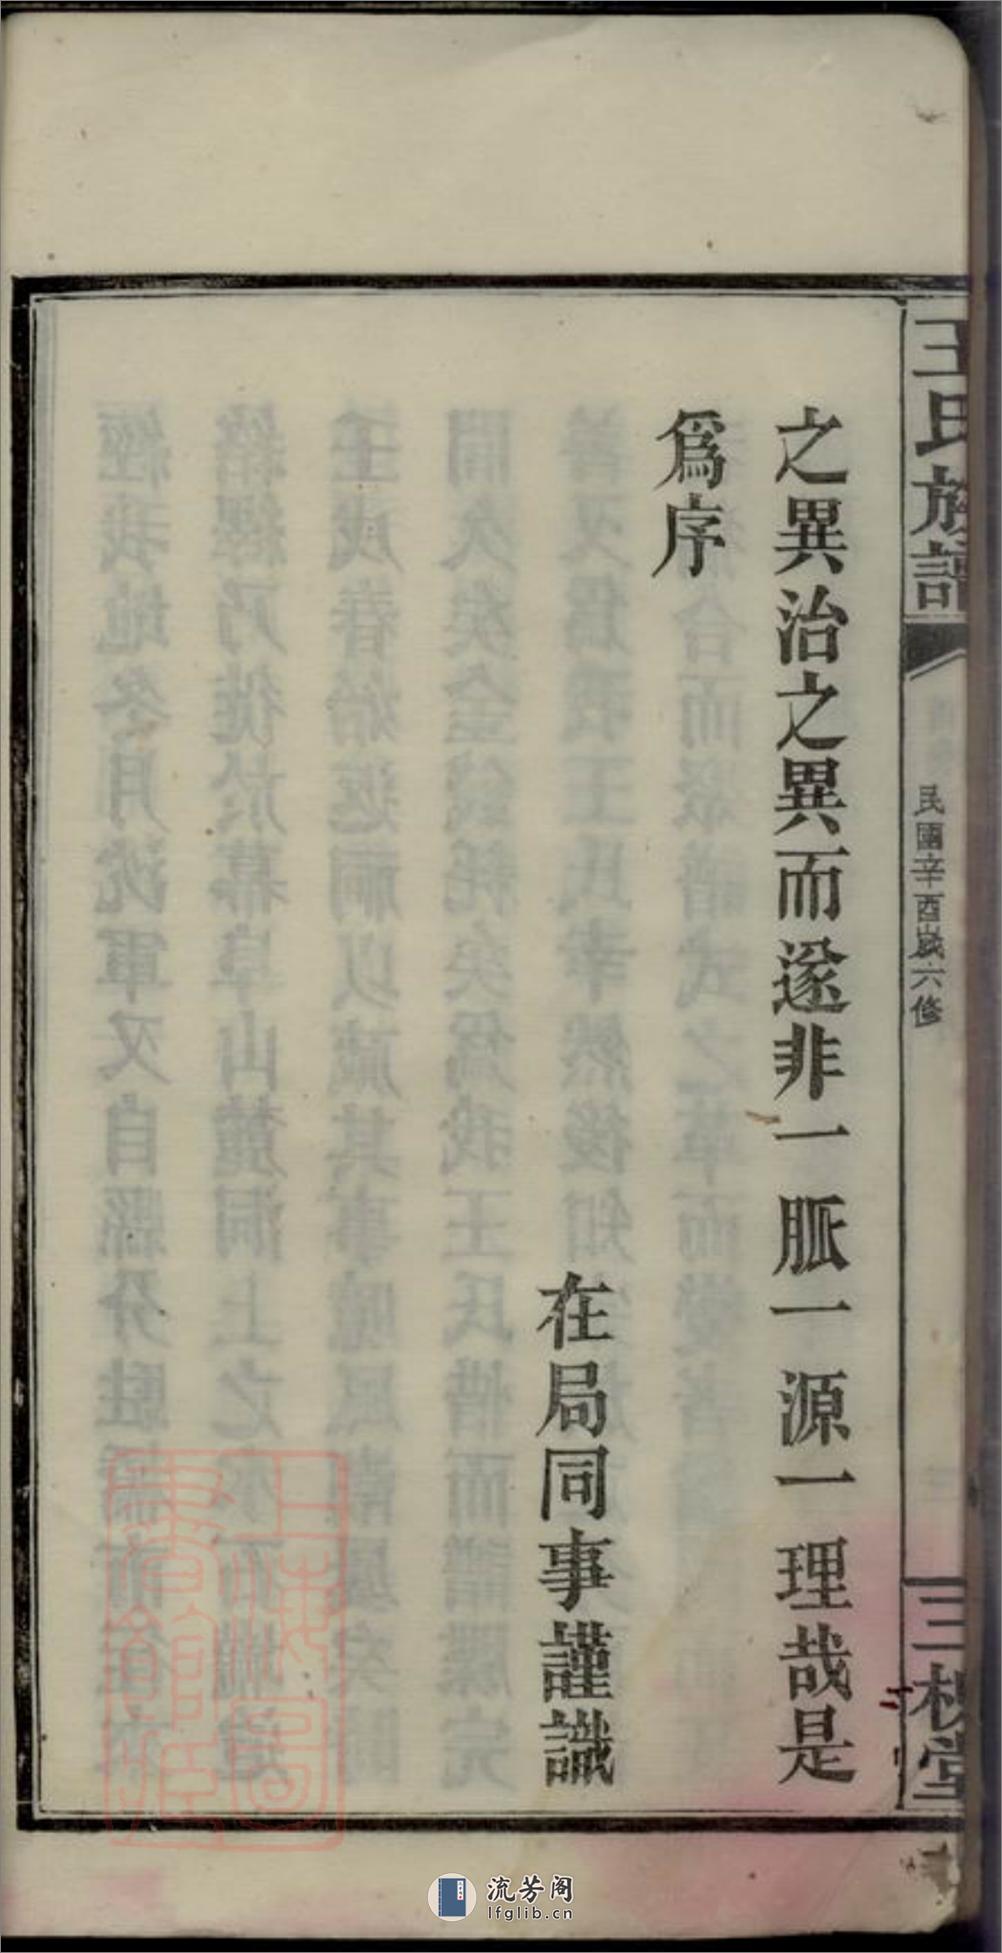 王氏族譜
民國辛酉歲六修
三槐堂
之異治之異而遂非一脈一源一理哉是
爲序
在局同事謹識
上海圖書館藏
流芳阁
lfglib.cn